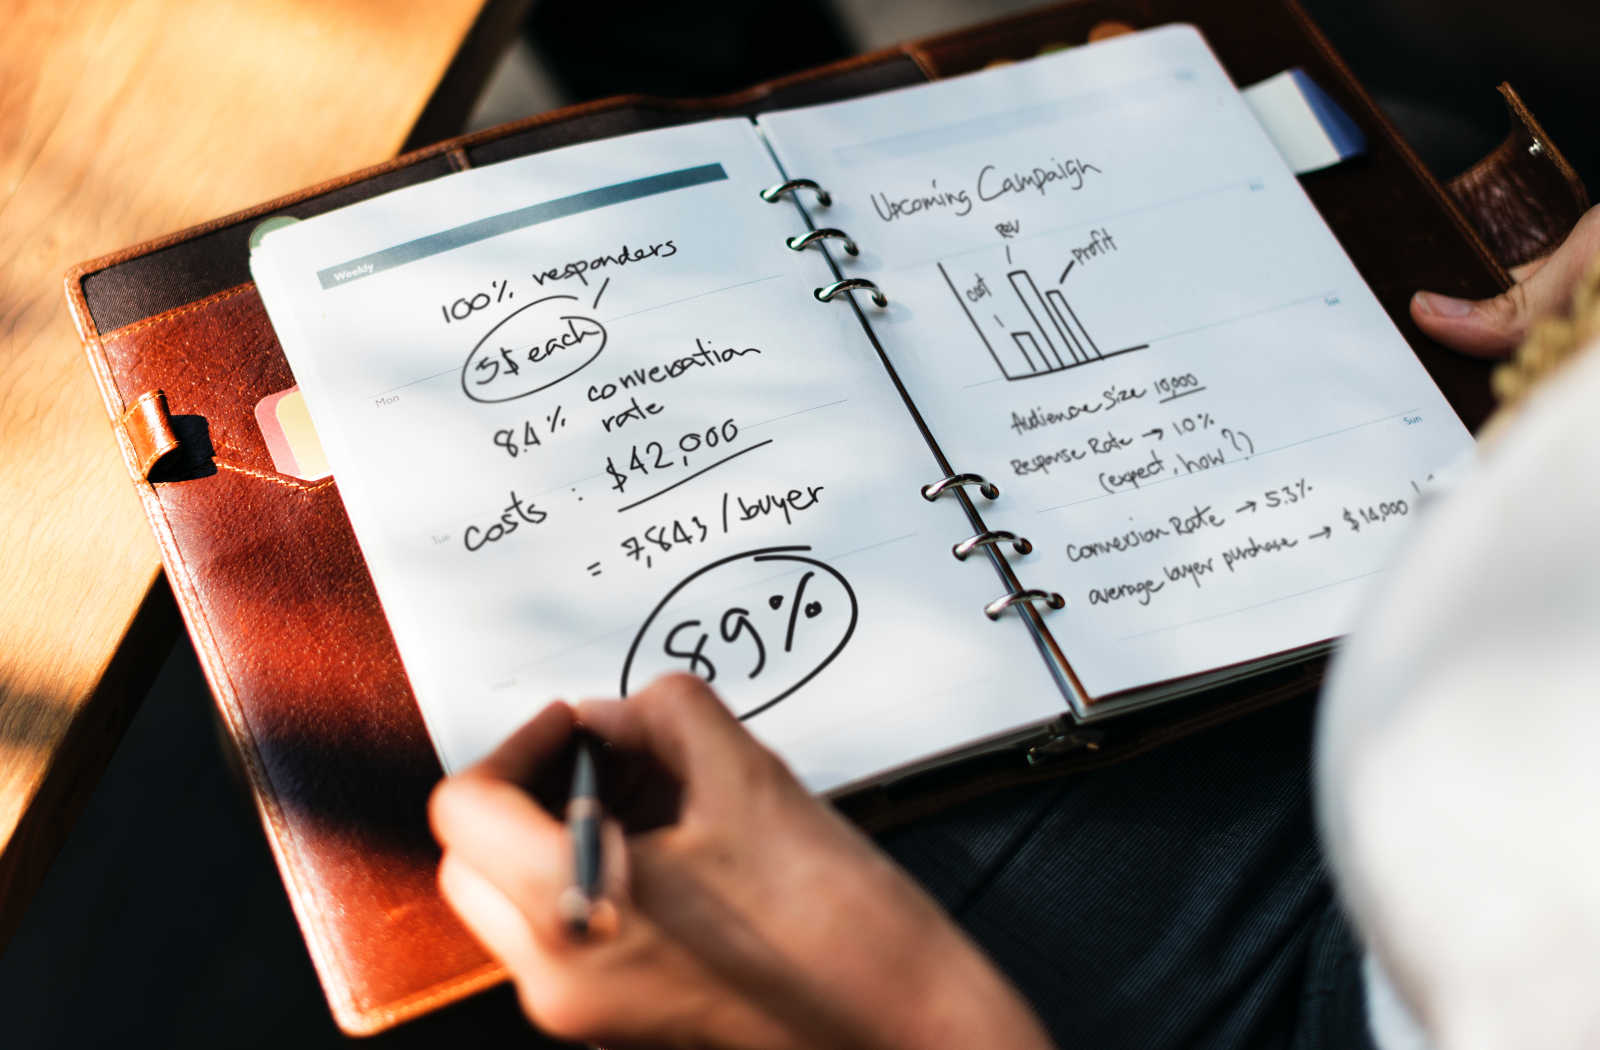 Weekly
100% responders
5$ each
Mon
8.4% conversation
rate
Tue
costs : $42,000
= 7,843 / buyer
89%
Upcoming Campaign
Rev
profit
cost
Sat
Audience Size 10,000
Response Rate → 10%
(expect, how?)
Sun
Conversion Rate → 5.3%
average buyer purchase → $14,000